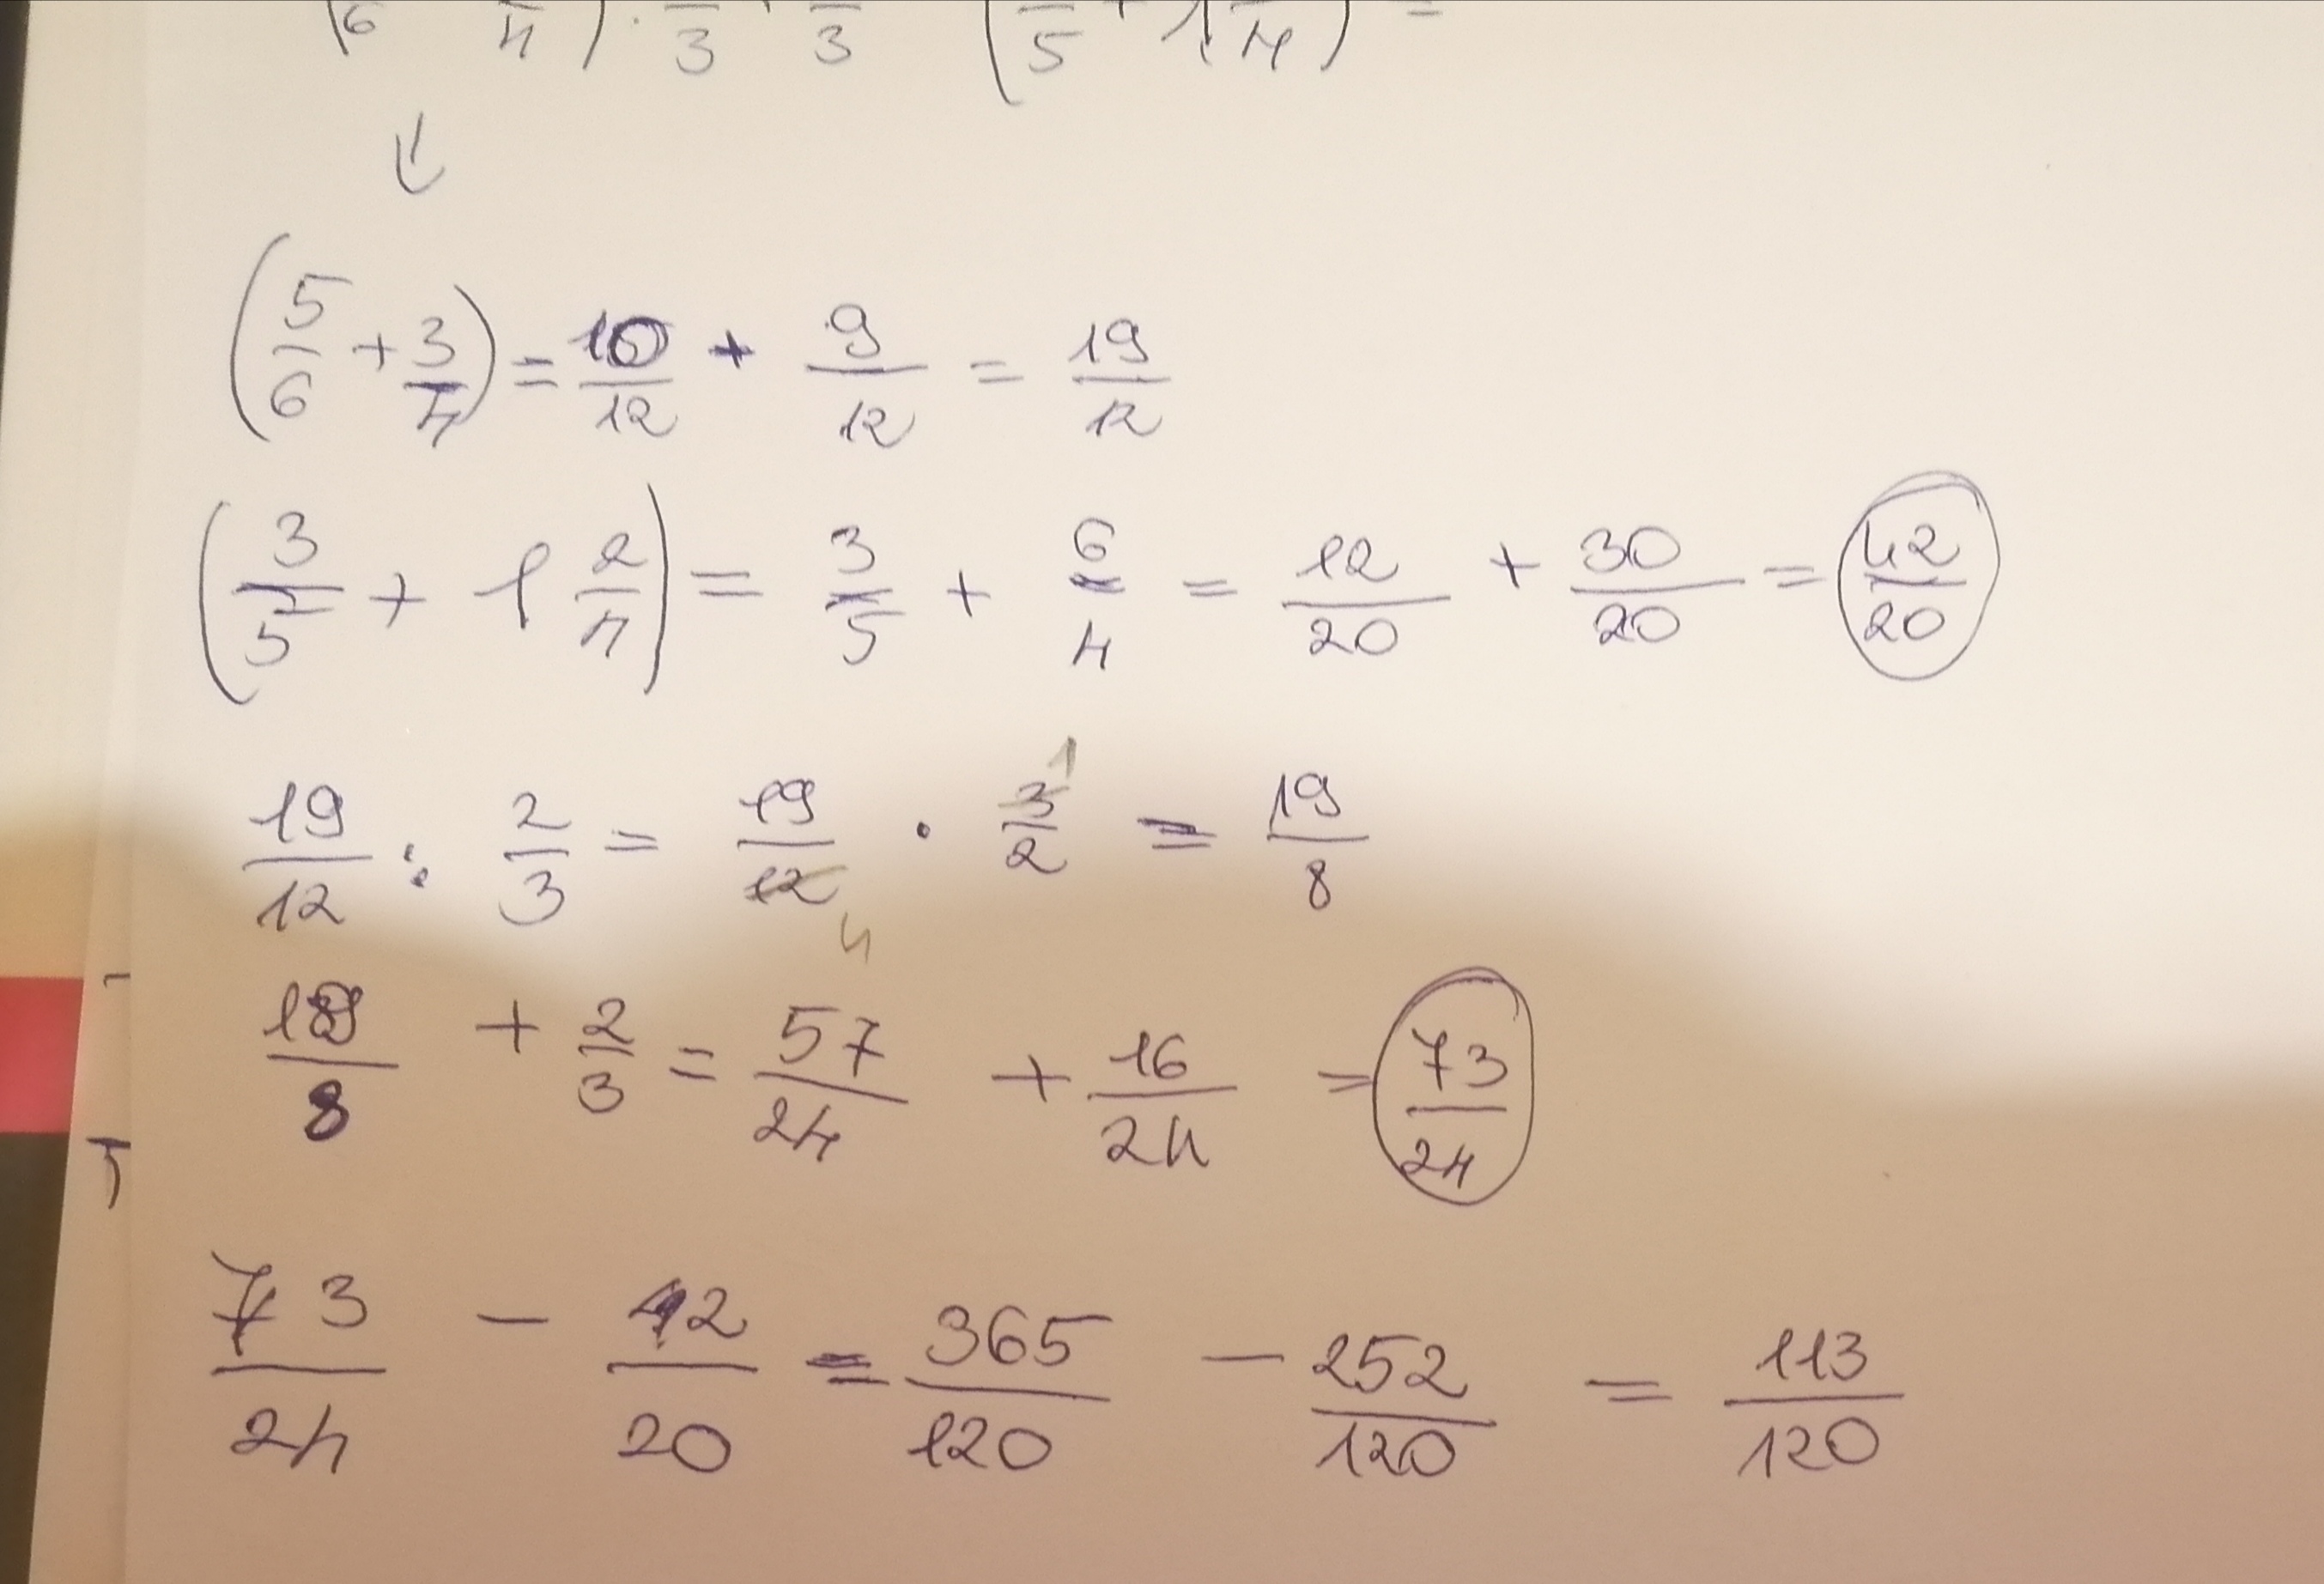 (6 4) : 3 3 (5 + 1 4) =
↓
(5/6 + 3/4) = 10/12 + 9/12 = 19/12
(3/5 + 1 2/4) = 3/5 + 6/4 = 12/20 + 30/20 = 42/20
19/12 : 2/3 = 19/12 4 · 3/2 1 = 19/8
19/8 + 2/3 = 57/24 + 16/24 = 73/24
73/24 - 42/20 = 365/120 - 252/120 = 113/120